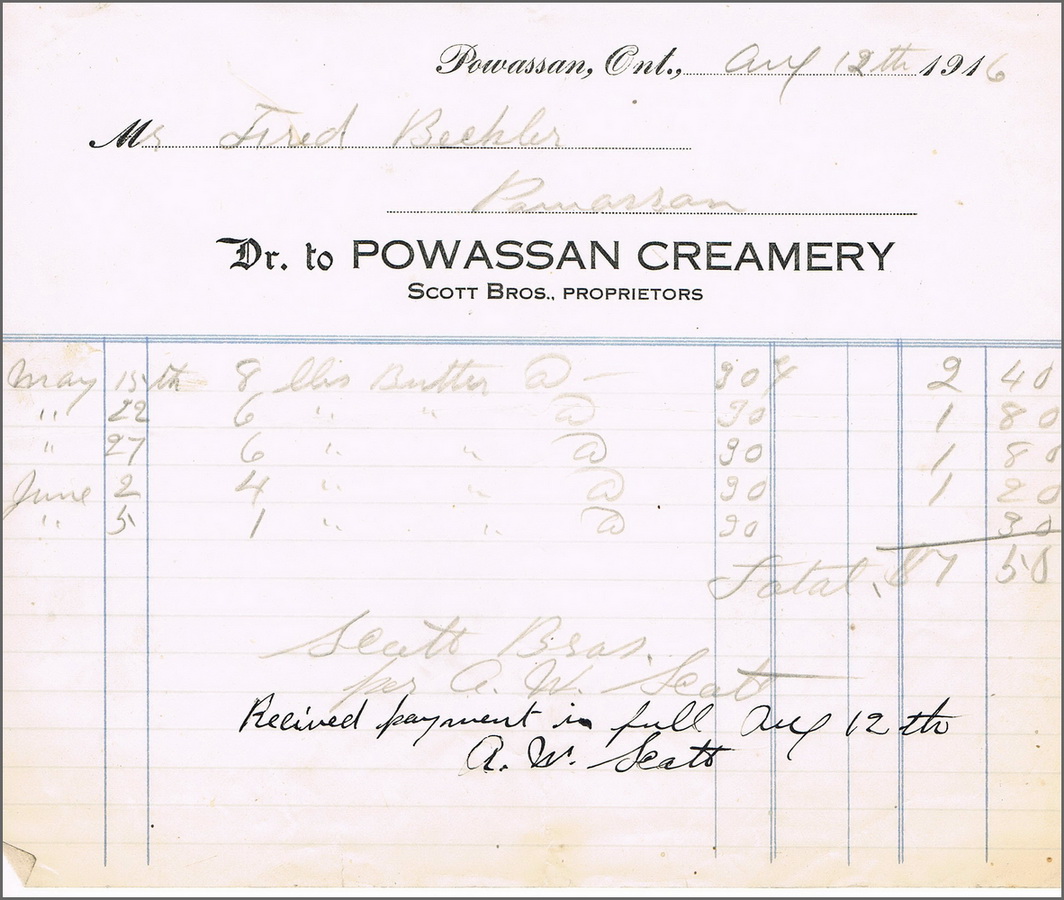 Powassan, Ont., Aug 12th 1916
Mr Fred Beckler
Powassan
Dr. to POWASSAN CREAMERY
SCOTT BROS., PROPRIETORS
May 15th 8 lbs Butter @ — 30¢ 2 40
" 22 6 " " @ 30 1 80
" 27 6 " " @ 30 1 80
June 2 4 " " @ 30 1 20
" 5 1 " " @ 30 30
Total. $7 50
Scott Bros.
per A. W. Scott
Recived payment in full Aug 12th
A. W. Scott